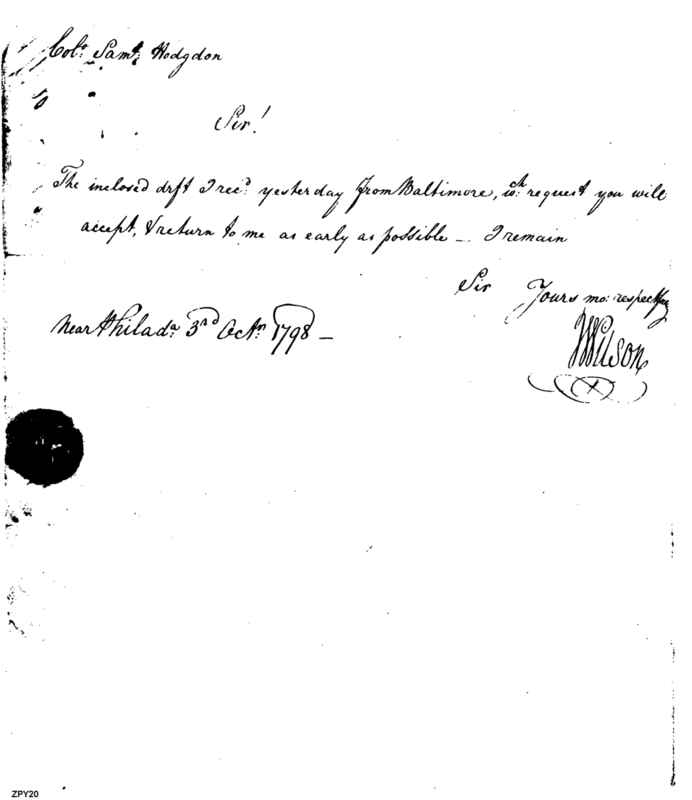 Colo. Saml. Hodgdon
Sir!
The inclosed drft I recd. yesterday from Baltimore, wch. request you will
accept, & return to me as early as possible — I remain
Sir Yours mo: respectfuy
Near Philada. 3rd Octr. 1798 —
JWilson
ZPY20